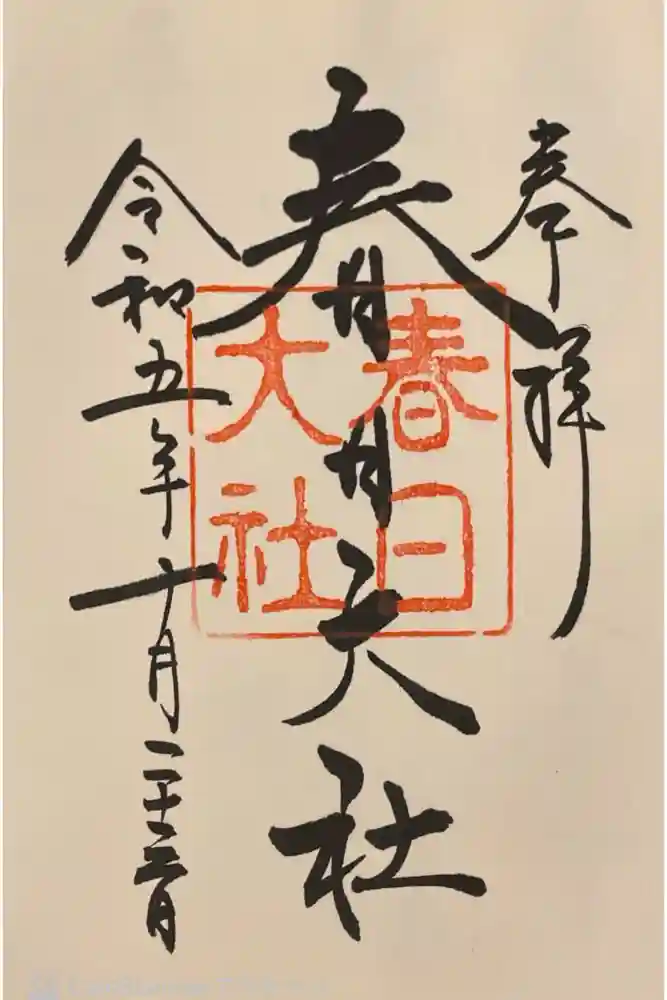 奉拝
春日大社
令和五年十月二十三日
春日
大社